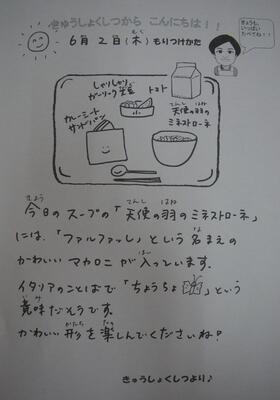 きゅうしょくしつから こんにちは！！
きょうも、
いっぱい
たべてね！！
6月2日(木)もりつけかた
もく
しゃりしゃり
ガーリック
トマト
カレーミート
サンドパン
てんし はね
天使の羽の
ミネストローネ
きょう てんし はね
今日のスープの「天使の羽のミネストローネ」
には、「ファルファッレ」という名まえの
な
かわいいマカロニが入っています。
はい
イタリアのことばで「ちょうちょ」という
いみ
意味だそうです。
かたち たの
かわいい形を楽しんでくださいね？
きゅうしょくしつより♪